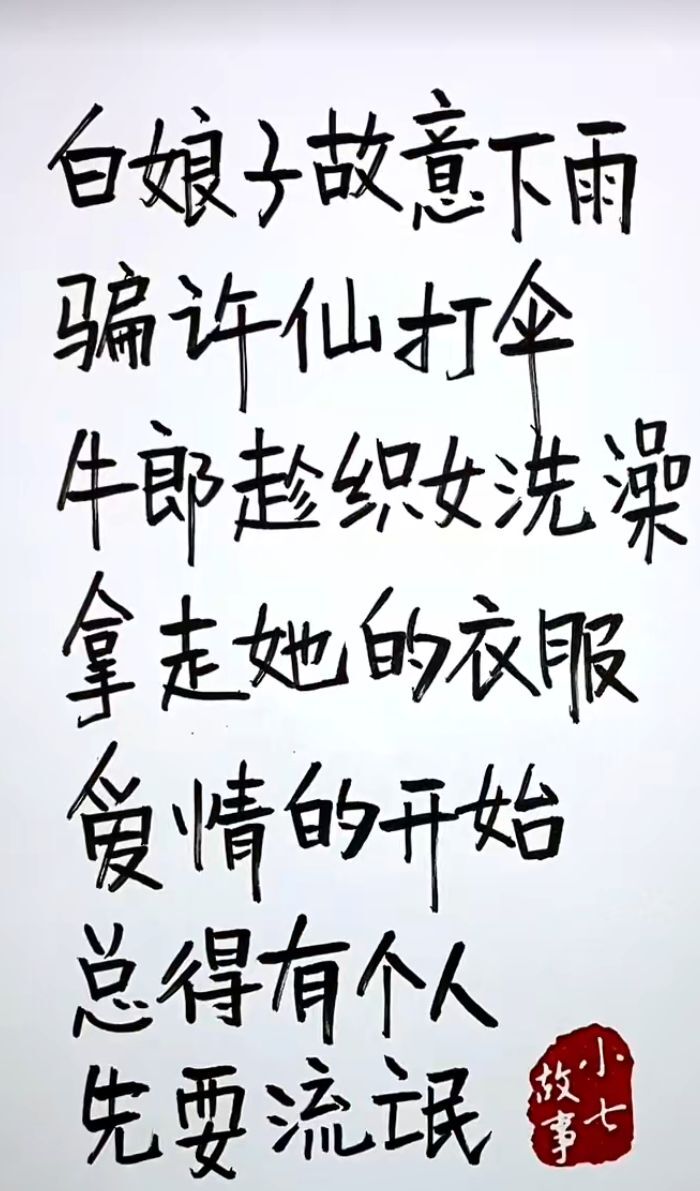 白娘子故意下雨
骗许仙打伞
牛郎趁织女洗澡
拿走她的衣服
爱情的开始
总得有个人
先要流氓
小七
故事